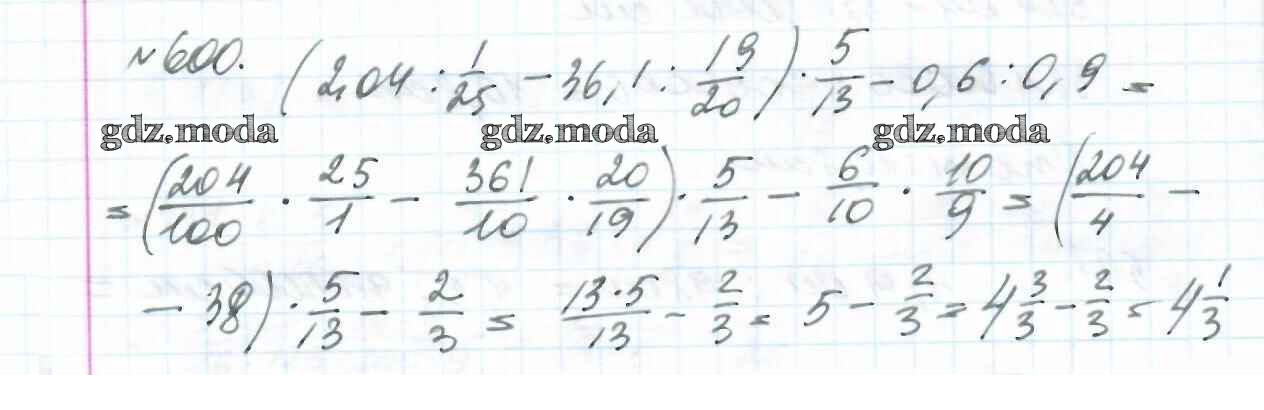 №600. (2,04 : 1/25 - 36,1 : 19/20) · 5/13 - 0,6 : 0,9 =
gdz.moda gdz.moda gdz.moda
= (204/100 · 25/1 - 361/10 · 20/19) · 5/13 - 6/10 · 10/9 = (204/4 -
- 38) · 5/13 - 2/3 = 13·5/13 - 2/3 = 5 - 2/3 = 4 3/3 - 2/3 = 4 1/3